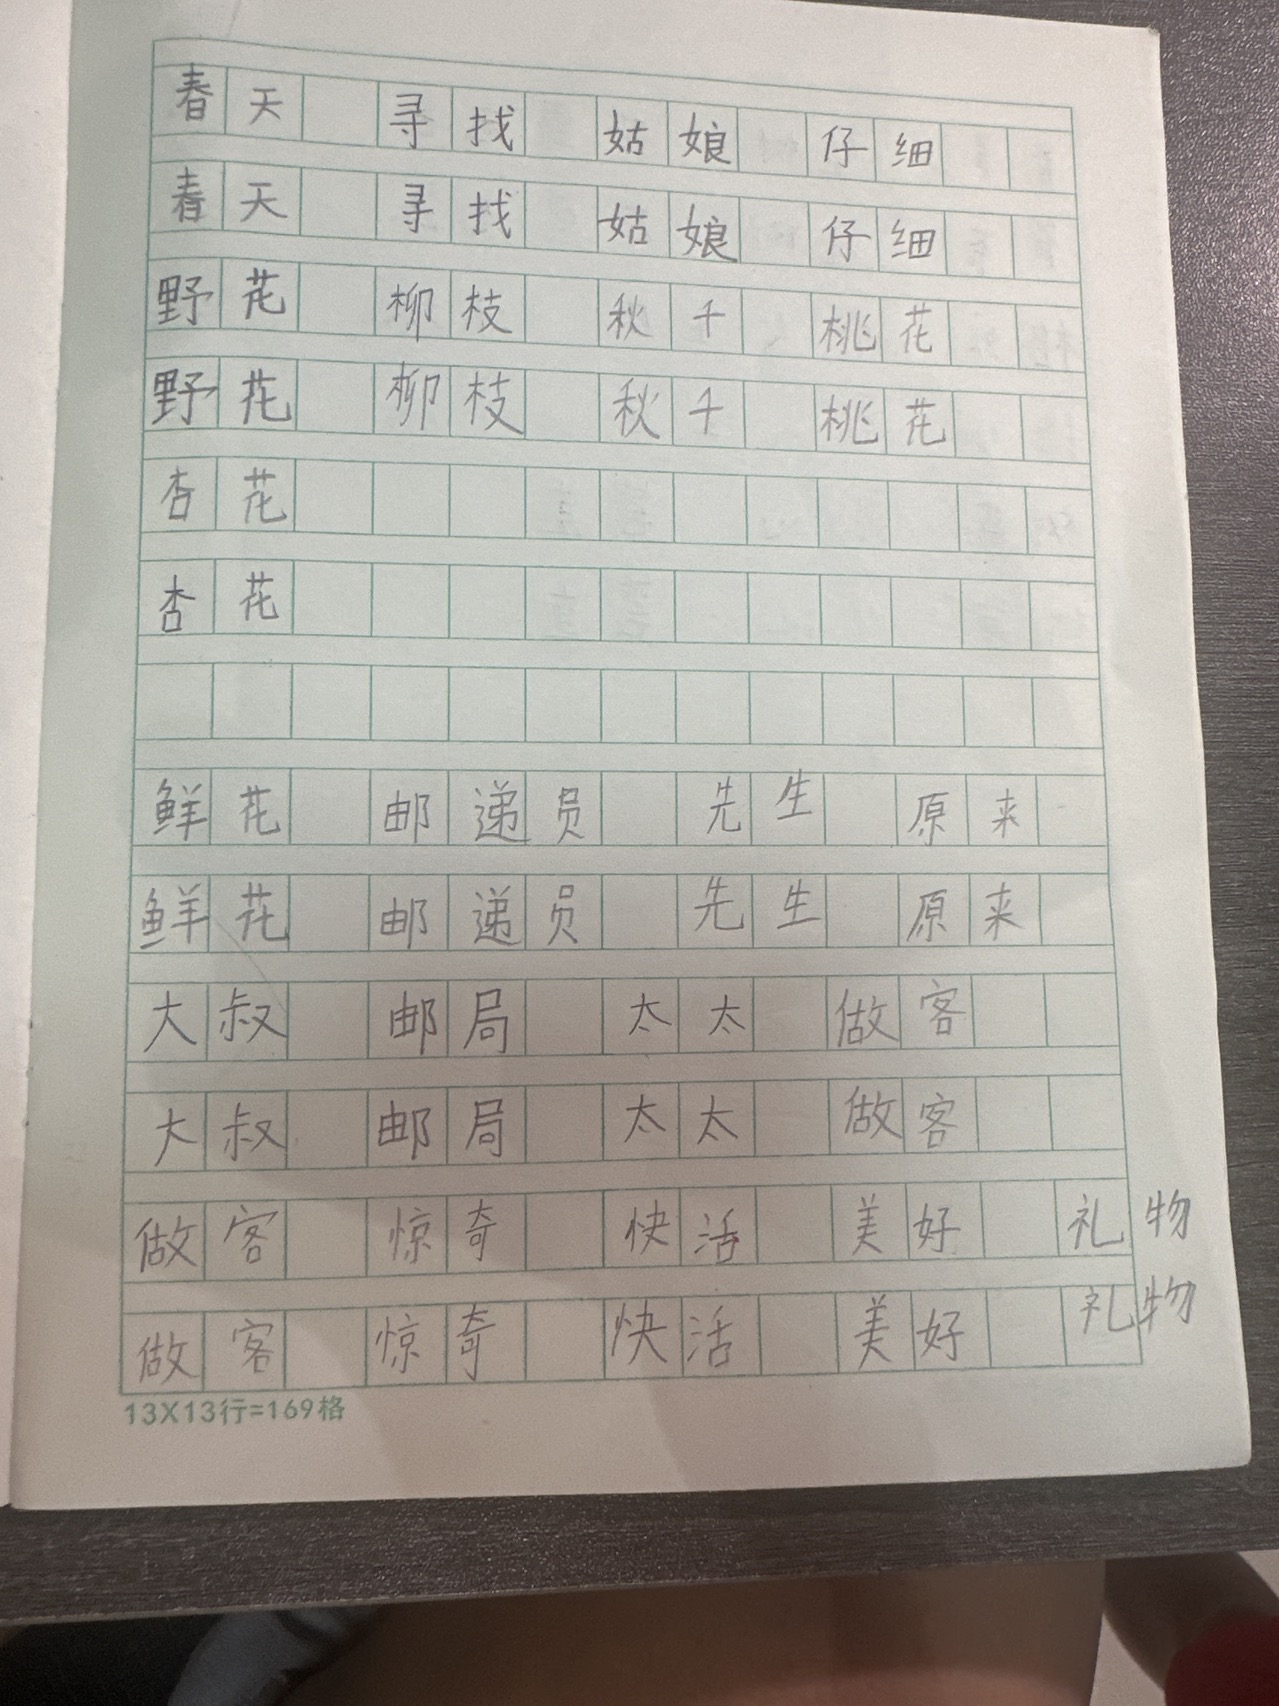 春天 寻找 姑娘 仔细
春天 寻找 姑娘 仔细
野花 柳枝 秋千 桃花
野花 柳枝 秋千 桃花
杏花
杏花
鲜花 邮递员 先生 原来
鲜花 邮递员 先生 原来
大叔 邮局 太太 做客
大叔 邮局 太太 做客
做客 惊奇 快活 美好 礼物
做客 惊奇 快活 美好 礼物
13X13行=169格